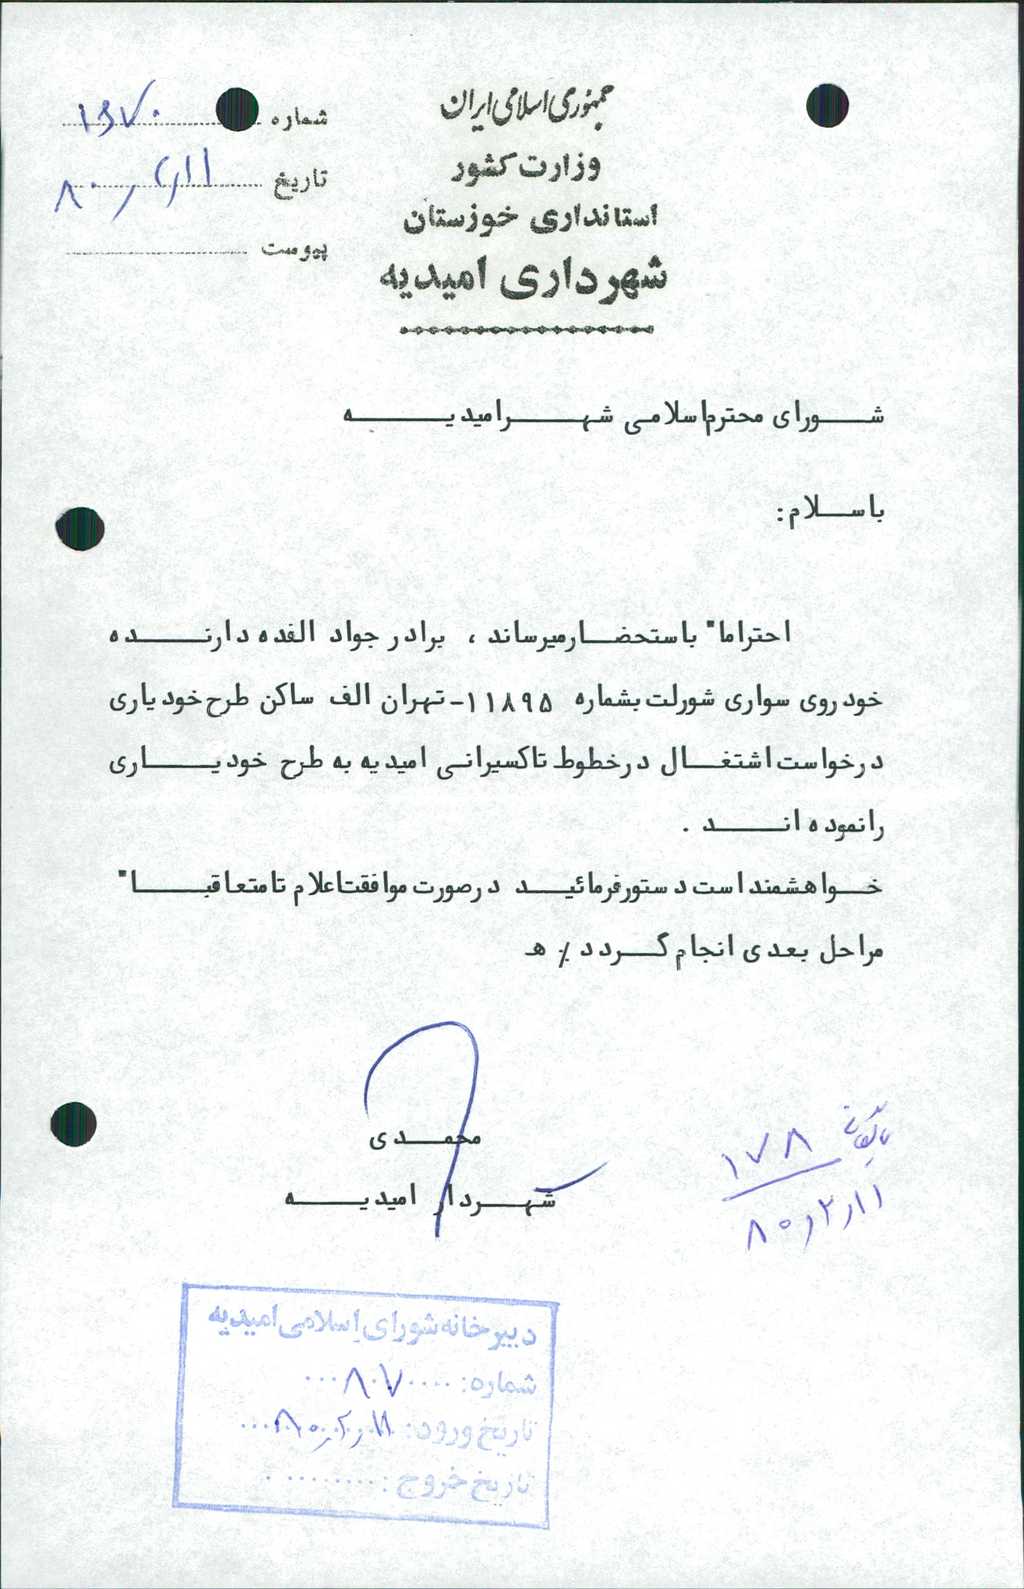 جمهوری اسلامی ایران
وزارت کشور
استانداری خوزستان
شهرداری امیدیه
شماره
تاریخ ۸۰/۲/۱۱
پیوست
شورای محترم اسلامی شهر امیدیه
باسلام:
احتراما" باستحضار میرساند ، برادر جواد الفده دارنده
خودروی سواری شورلت بشماره ۱۱۸۹۵-تهران الف ساکن طرح خودیاری
درخواست اشتغال در خطوط تاکسیرانی امیدیه به طرح خودیاری
را نموده اند .
خواهشمند است دستور فرمائید در صورت موافقت اعلام تا متعاقبا"
مراحل بعدی انجام گردد ٪ ه
محمدی
شهردار امیدیه
۱۷۸
۸۰/۲/۱۱
دبیرخانه شورای اسلامی امیدیه
شماره: ۸۰۷
تاریخ ورود: ۸۰/۲/۱۱
تاریخ خروج: